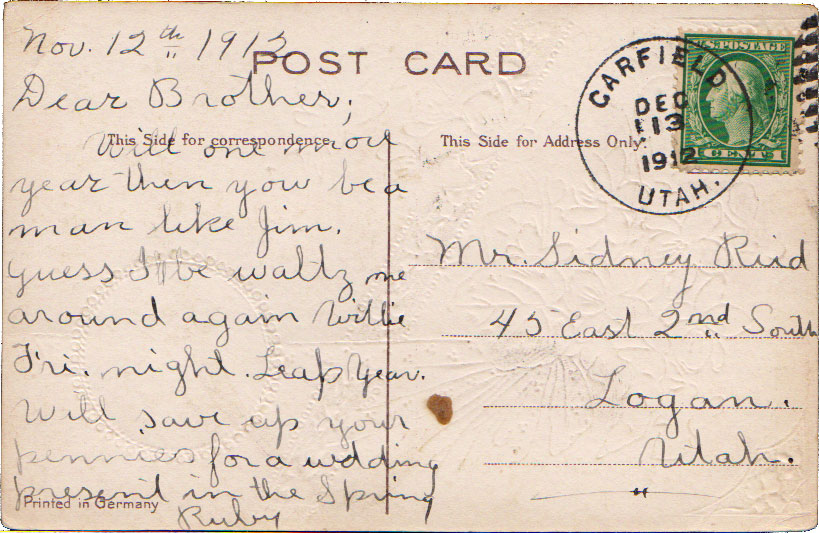 Nov. 12th 1912
POST CARD
Dear Brother;
This Side for correspondence
Will one more
year then you be a
man like Jim.
Guess I'll be waltz me
around again Willie
Fri. night. Leap Year.
Will save up your
pennies for a wedding
present in the Spring
Ruby
Printed in Germany
This Side for Address Only.
GARFIELD
DEC
13
1912
UTAH.
U.S. POSTAGE
Mr. Sidney Ried
45 East 2nd South
Logan.
Utah.